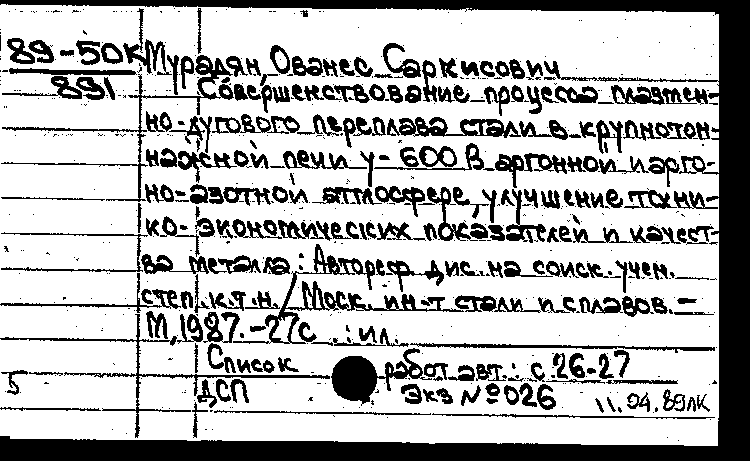 89-50К Мурадян, Ованес Саркисович
891 Совершенствование процесса плазмен-
но-дугового переплава стали в крупнотон-
нажной печи У-600 в аргонной и арго-
но-азотной атмосфере, улучшение техни-
ко-экономических показателей и качест-
ва металла: Автореф. дис. на соиск. учен.
степ. к.т.н. / Моск. ин-т стали и сплавов. –
М, 1987. – 27с. : ил.
Список работ авт.: с. 26-27
5 ДСП Экз № 026 11.04.89ЛК